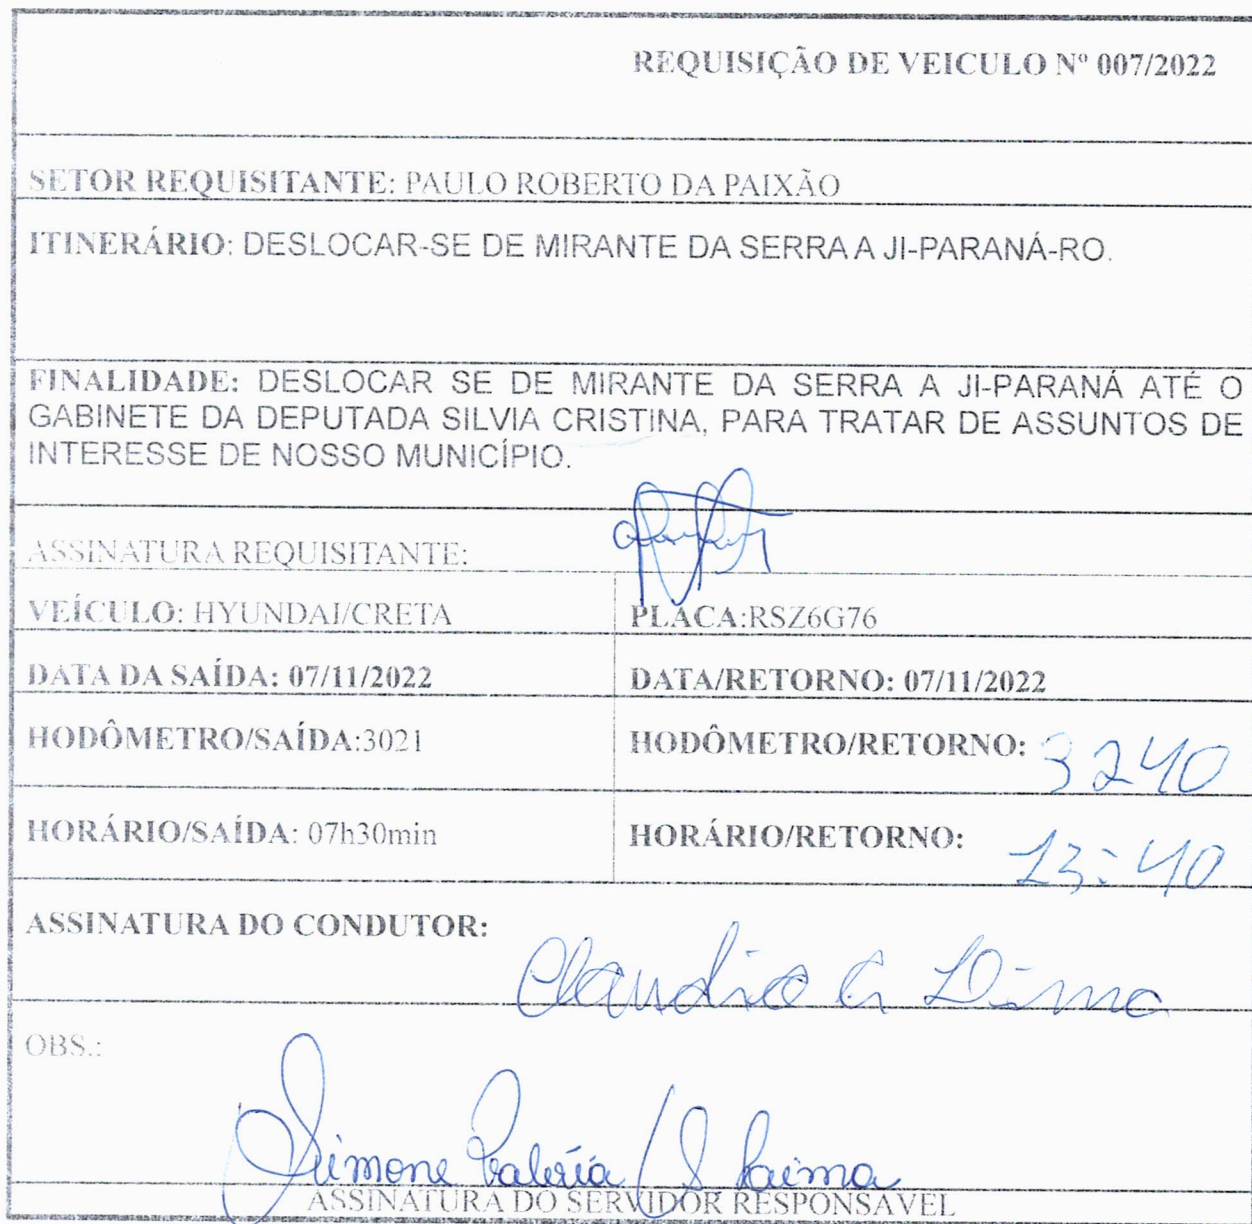 REQUISIÇÃO DE VEICULO Nº 007/2022
SETOR REQUISITANTE: PAULO ROBERTO DA PAIXÃO
ITINERÁRIO: DESLOCAR-SE DE MIRANTE DA SERRA A JI-PARANÁ-RO.
FINALIDADE: DESLOCAR SE DE MIRANTE DA SERRA A JI-PARANÁ ATÉ O
GABINETE DA DEPUTADA SILVIA CRISTINA, PARA TRATAR DE ASSUNTOS DE
INTERESSE DE NOSSO MUNICÍPIO.
ASSINATURA REQUISITANTE:
VEÍCULO: HYUNDAI/CRETA PLACA:RSZ6G76
DATA DA SAÍDA: 07/11/2022 DATA/RETORNO: 07/11/2022
HODÔMETRO/SAÍDA:3021 HODÔMETRO/RETORNO: 3240
HORÁRIO/SAÍDA: 07h30min HORÁRIO/RETORNO: 13:40
ASSINATURA DO CONDUTOR:
OBS.:
Simone
ASSINATURA DO SERVIDOR RESPONSAVEL